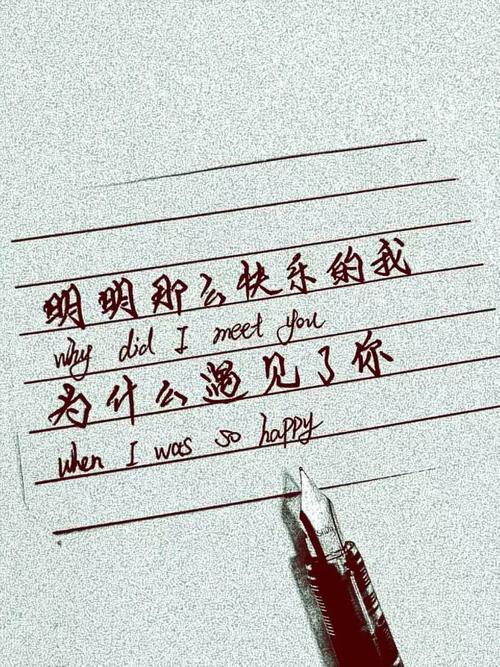 明明那么快乐的我
why did I meet you
为什么遇见了你
when I was so happy